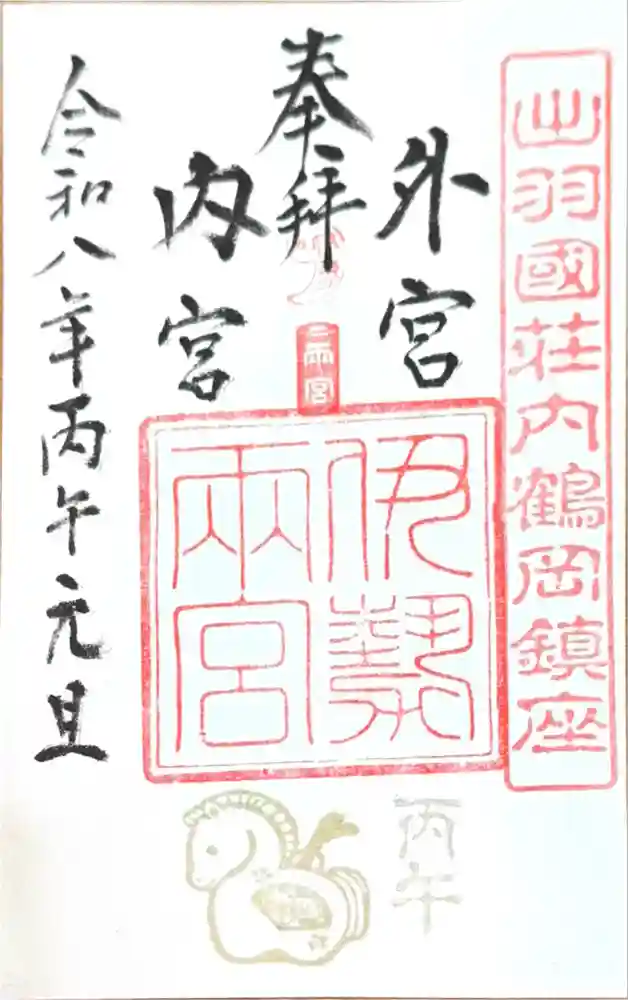 出羽國荘内鶴岡鎮座
外宮
奉拝
内宮
両宮
伊勢
兩宮
令和八年丙午元旦
丙午